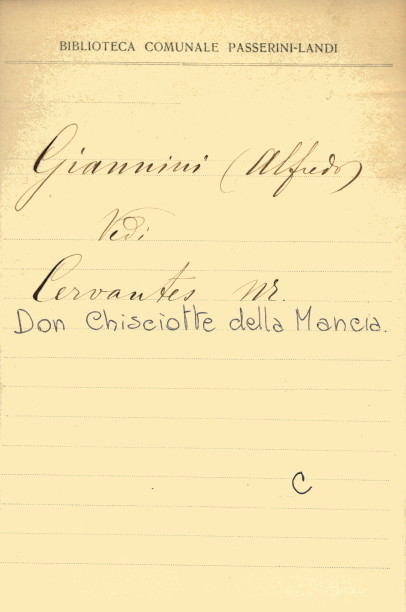 BIBLIOTECA COMUNALE PASSERINI-LANDI
Giannini (Alfredo)
Vedi
Cervantes M.
Don Chisciotte della Mancia.
C